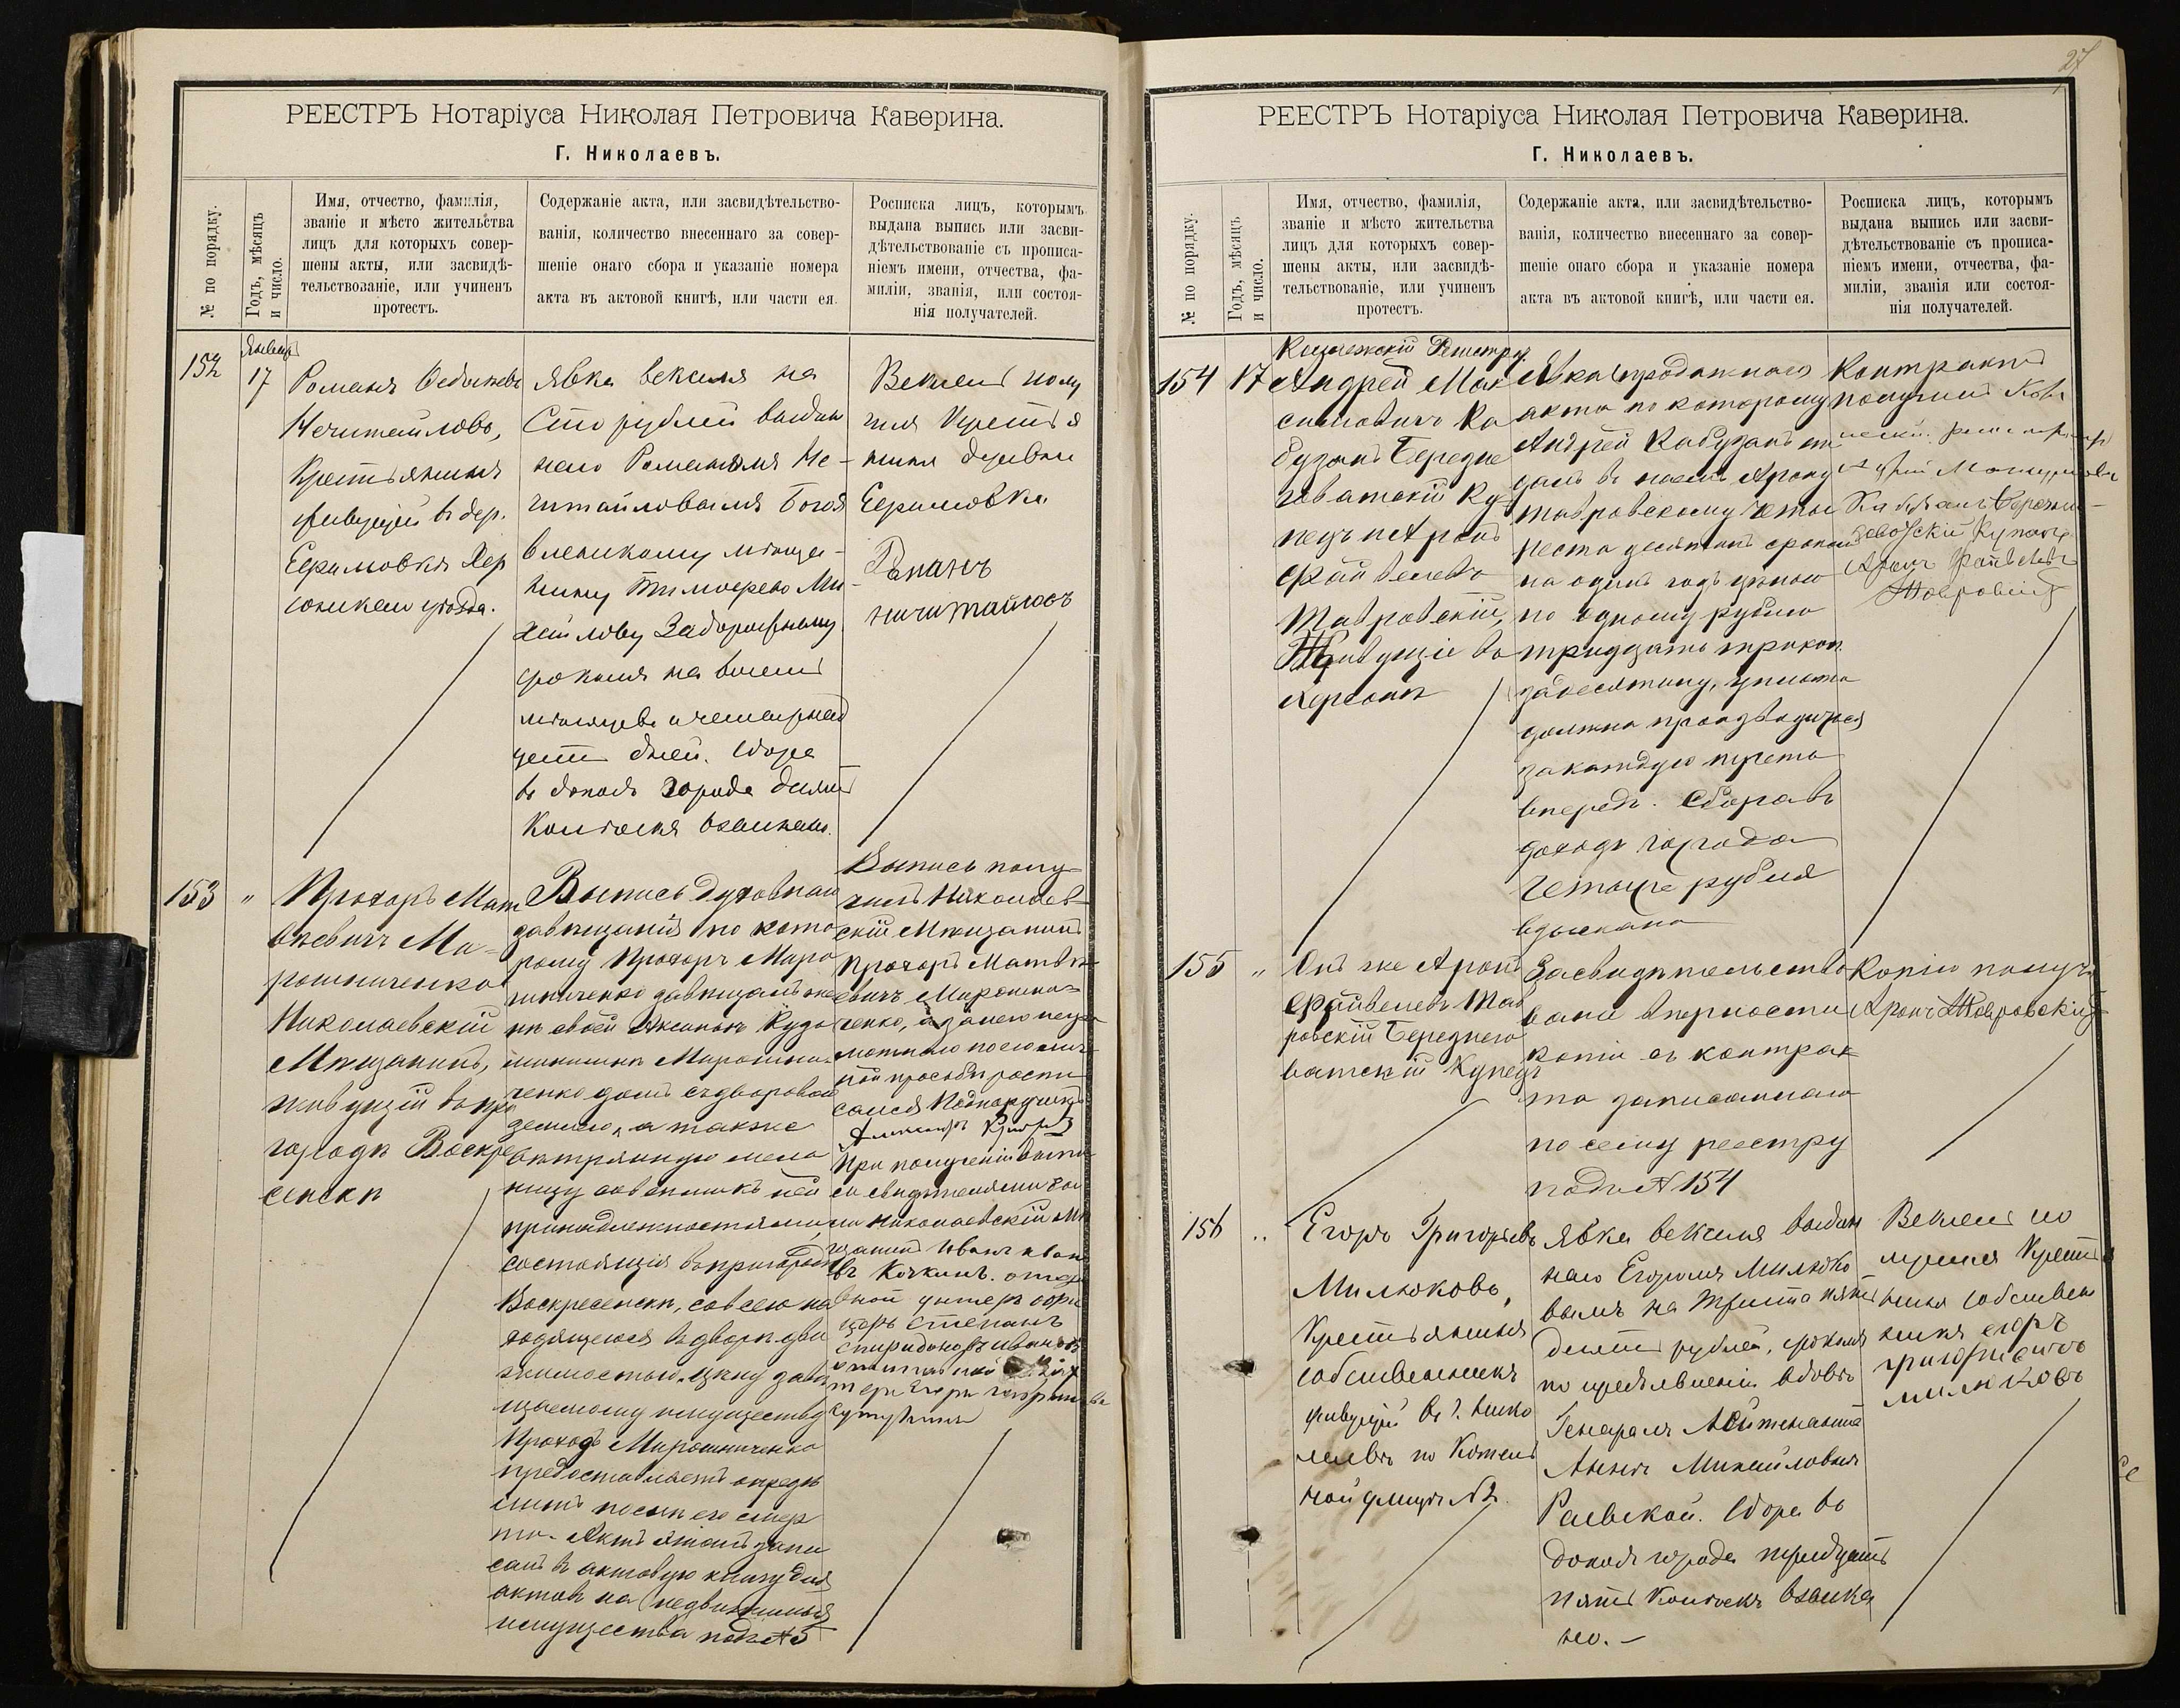 РЕЕСТРЪ Нотаріуса Николая Петровича Каверина.
Г. Николаевъ.
№ по порядку.
Годъ, мѣсяцъ
и число.
Имя, отчество, фамилія,
званіе и мѣсто жительства
лицъ для которыхъ совер-
шены акты, или засвидѣ-
тельствованіе, или учиненъ
протестъ.
Содержаніе акта, или засвидѣтельство-
ванія, количество внесеннаго за совер-
шеніе онаго сбора и указаніе номера
акта въ актовой книгѣ, или части ея.
Росписка лицъ, которымъ
выдана выпись или засви-
дѣтельствованіе съ прописа-
ніемъ имени, отчества, фа-
миліи, званія, или состоя-
нія получателей.
152
17
Романъ
Нечитайловъ,
Крестьянинъ
живущій въ дер.
Ефимовкѣ Хер
сонскаго уѣзда.
Явка векселя на
Сто рублей выдан
наго Романомъ Не-
читайловымъ Бого
явленскому мѣща-
нину Тимофею Ми-
хайлову Заборожному
срокомъ на восемь
мѣсяцевъ и четырнад
цать дней. Сбора
въ доходъ города десять
Копѣекъ взыскано.
Вексель полу
чилъ Крестья
нинъ деревни
Ефимовки
Раманъ
ничитайловъ
153
"
Прохоръ Мат
вѣевичъ Ми-
рошниченко
Николаевскій
Мѣщанинъ,
живущій въ при
городѣ Воскре
сенскѣ
Выпись духовнаго
завѣщанія по кото
рому Прохоръ Миро
шниченко завѣщалъ же
нѣ своей Аксиньѣ Кузь
миничнѣ Мирошни
ченко домъ съ дворовою
землею, а также
вѣтрянную мель
ницу со всѣми къ ней
принадлежностями,
состоящія въ пригородѣ
Воскресенскѣ, со всею на
ходящеюся въ дворѣ дви
жимостью. Цѣну завѣ
щаемому имуществу
Прохоръ Мирошниченко
предоставляетъ опредѣ
лить послѣ его смер
ти. Актъ этотъ запи
санъ въ актовую книгу для
актовъ на недвижимыя
имущества подъ № 5
Выпись полу-
чилъ Николаев-
скій Мѣщанинъ
Прохоръ Матвѣ
евичъ Мирошни-
ченко, а за него негра
мотнаго по его лич-
ной просьбѣ роспи
сался Подпоручикъ
При полученіи выпи
си свидѣтелями бы
ли Николаевскій Мѣ
щанинъ Иванъ Ивано
въ Кочкинъ. отста
вной унтеръ офи
церъ Степанъ
Спиридоновъ Ивановъ
27
РЕЕСТРЪ Нотаріуса Николая Петровича Каверина.
Г. Николаевъ.
№ по порядку.
Годъ, мѣсяцъ
и число.
Имя, отчество, фамилія,
званіе и мѣсто жительства
лицъ для которыхъ совер-
шены акты, или засвидѣ-
тельствованіе, или учиненъ
протестъ.
Содержаніе акта, или засвидѣтельство-
ванія, количество внесеннаго за совер-
шеніе онаго сбора и указаніе номера
акта въ актовой книгѣ, или части ея.
Росписка лицъ, которымъ
выдана выпись или засви-
дѣтельствованіе съ прописа-
ніемъ имени, отчества, фа-
миліи, званія или состоя-
нія получателей.
154
17
Андрей Мак
симовичъ Ка
бузанъ Березне
говатскій Ку
пецъ и Аронъ
Файвелевъ
Тавровскій,
Живущіе въ
Херсонѣ
Явка продажнаго
акта по которому
Андрей Кабузанъ от
далъ въ наемъ Арону
Тавровскому четы
реста десятинъ срокомъ
на одинъ годъ цѣною
по одному рублю
тридцать три коп.
за десятину, уплата
должна производиться
за каждую треть
впередъ. Сбора въ
доходъ города
четыре рубля
взыскано
Контрактъ
получилъ
Кабузанъ
Купецъ
Аронъ Файвелевъ
Тавровскій
155
"
Онъ же Аронъ
Файвелевъ Тав
ровскій Березнего
ватскій Купецъ
Засвидѣтельство
ваніе вѣрности
копіи съ контрак
та записаннаго
по сему реестру
подъ № 154
Копію получ.
Аронъ Тавровскій
156
"
Егоръ Григорьевъ
Милюковъ,
Крестьянинъ
собственникъ
живущій въ г. Нико
лаевѣ по Котель
ной улицѣ № 2.
Явка векселя выдан
наго Егоромъ Милюко
вымъ на Триста пять
десятъ рублей, срокомъ
по предъявленіи вдовѣ
Генералъ Лейтенанта
Аннѣ Михайловнѣ
Раевской. Сбора въ
доходъ города тридцать
пять Копѣекъ взыска
но. –
Вексель по
лучилъ Крестья
нинъ Собствен
никъ егоръ
григориевичъ
милюковъ